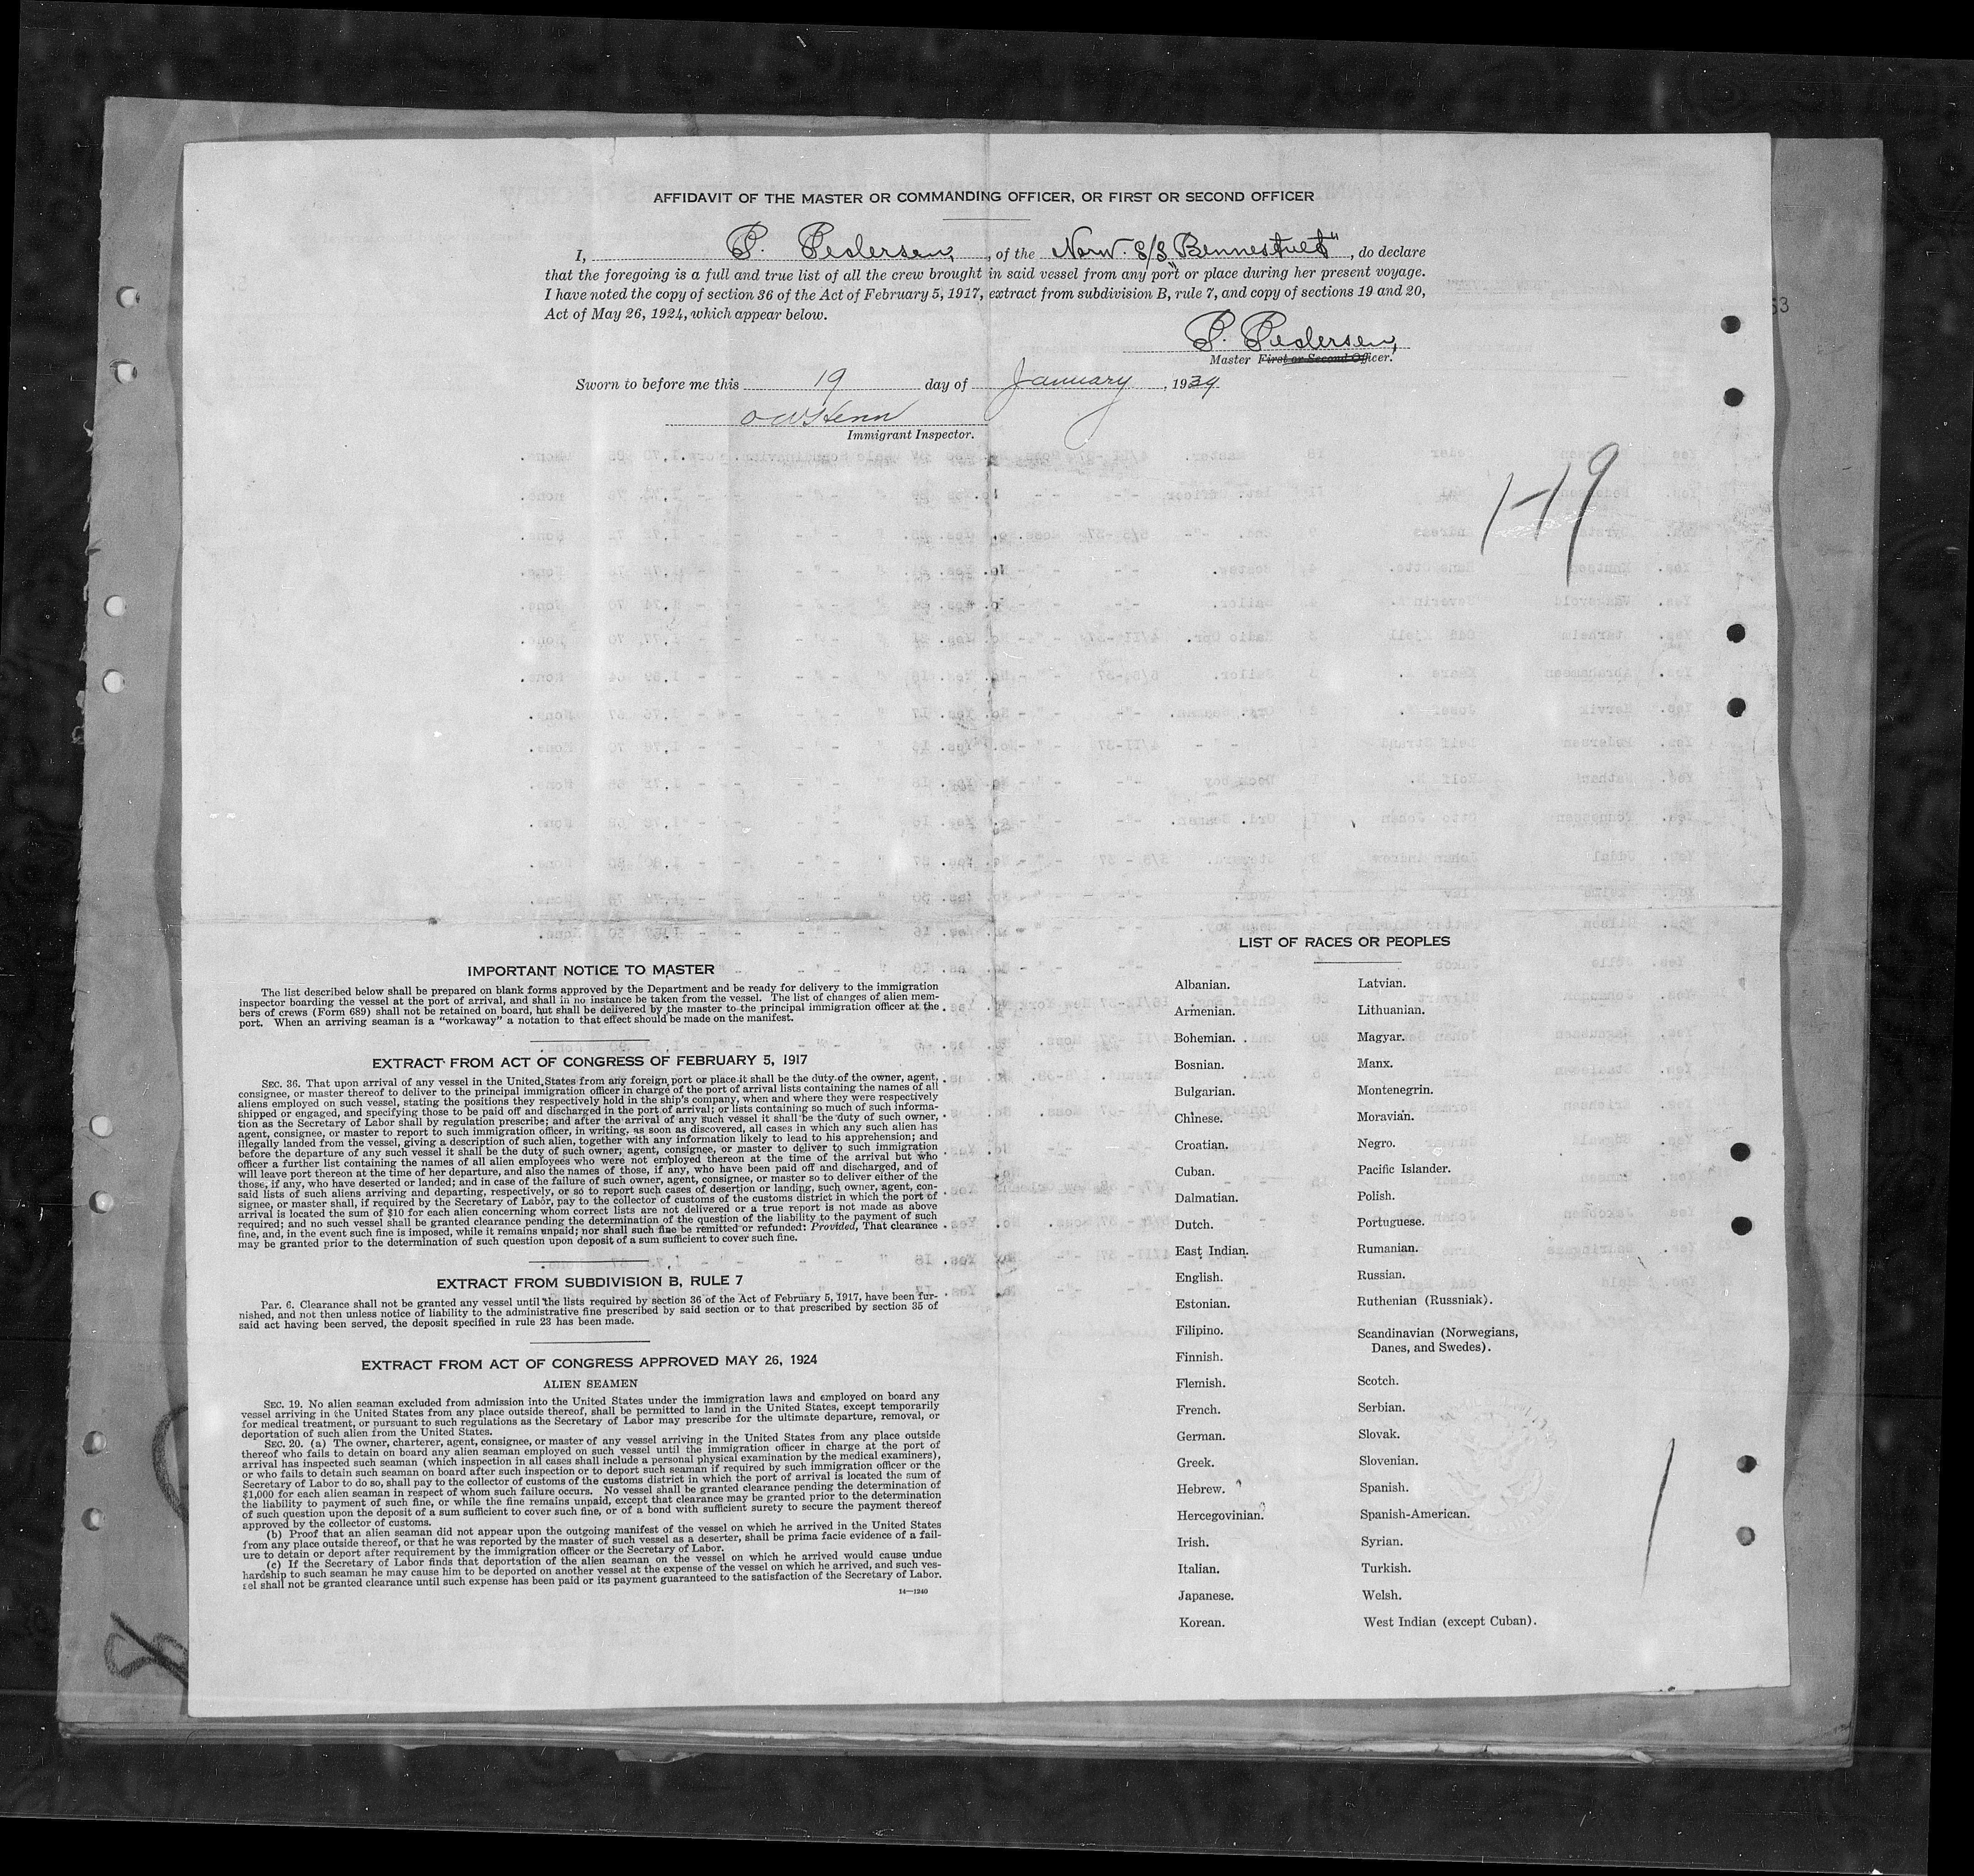 AFFIDAVIT OF THE MASTER OR COMMANDING OFFICER, OR FIRST OR SECOND OFFICER
I, P. Pedersen, of the Norw. S/S "Bennestvet", do declare
that the foregoing is a full and true list of all the crew brought in said vessel from any port or place during her present voyage.
I have noted the copy of section 36 of the Act of February 5, 1917, extract from subdivision B, rule 7, and copy of sections 19 and 20,
Act of May 26, 1924, which appear below.
P. Pedersen,
Master First or Second Officer.
Sworn to before me this 19 day of January, 1939
Immigrant Inspector.
1-19
IMPORTANT NOTICE TO MASTER
The list described below shall be prepared on blank forms approved by the Department and be ready for delivery to the immigration
inspector boarding the vessel at the port of arrival, and shall in no instance be taken from the vessel. The list of changes of alien mem-
bers of crews (Form 689) shall not be retained on board, but shall be delivered by the master to the principal immigration officer at the
port. When an arriving seaman is a "workaway" a notation to that effect should be made on the manifest.
EXTRACT FROM ACT OF CONGRESS OF FEBRUARY 5, 1917
SEC. 36. That upon arrival of any vessel in the United States from any foreign port or place it shall be the duty of the owner, agent,
consignee, or master thereof to deliver to the principal immigration officer in charge of the port of arrival lists containing the names of all
aliens employed on such vessel, stating the positions they respectively hold in the ship's company, when and where they were respectively
shipped or engaged, and specifying those to be paid off and discharged in the port of arrival; or lists containing so much of such informa-
tion as the Secretary of Labor shall by regulation prescribe; and after the arrival of any such vessel it shall be the duty of such owner,
agent, consignee, or master to report to such immigration officer, in writing, as soon as discovered, all cases in which any such alien has
illegally landed from the vessel, giving a description of such alien, together with any information likely to lead to his apprehension; and
before the departure of any such vessel it shall be the duty of such owner, agent, consignee, or master to deliver to such immigration
officer a further list containing the names of all alien employees who were not employed thereon at the time of the arrival but who
will leave port thereon at the time of her departure, and also the names of those, if any, who have been paid off and discharged, and of
those, if any, who have deserted or landed; and in case of the failure of such owner, agent, consignee, or master so to deliver either of the
said lists of such aliens arriving and departing, respectively, or so to report such cases of desertion or landing, such owner, agent, con-
signee, or master shall, if required by the Secretary of Labor, pay to the collector of customs of the customs district in which the port of
arrival is located the sum of $10 for each alien concerning whom correct lists are not delivered or a true report is not made as above
required; and no such vessel shall be granted clearance pending the determination of the question of the liability to the payment of such
fine, and, in the event such fine is imposed, while it remains unpaid; nor shall such fine be remitted or refunded: Provided, That clearance
may be granted prior to the determination of such question upon deposit of a sum sufficient to cover such fine.
EXTRACT FROM SUBDIVISION B, RULE 7
Par. 6. Clearance shall not be granted any vessel until the lists required by section 36 of the Act of February 5, 1917, have been fur-
nished, and not then unless notice of liability to the administrative fine prescribed by said section or to that prescribed by section 35 of
said act having been served, the deposit specified in rule 23 has been made.
EXTRACT FROM ACT OF CONGRESS APPROVED MAY 26, 1924
ALIEN SEAMEN
SEC. 19. No alien seaman excluded from admission into the United States under the immigration laws and employed on board any
vessel arriving in the United States from any place outside thereof, shall be permitted to land in the United States, except temporarily
for medical treatment, or pursuant to such regulations as the Secretary of Labor may prescribe for the ultimate departure, removal, or
deportation of such alien from the United States.
SEC. 20. (a) The owner, charterer, agent, consignee, or master of any vessel arriving in the United States from any place outside
thereof who fails to detain on board any alien seaman employed on such vessel until the immigration officer in charge at the port of
arrival has inspected such seaman (which inspection in all cases shall include a personal physical examination by the medical examiners),
or who fails to detain such seaman on board after such inspection or to deport such seaman if required by such immigration officer or the
Secretary of Labor to do so, shall pay to the collector of customs of the customs district in which the port of arrival is located the sum of
$1,000 for each alien seaman in respect of whom such failure occurs. No vessel shall be granted clearance pending the determination of
the liability to payment of such fine, or while the fine remains unpaid, except that clearance may be granted prior to the determination
of such question upon the deposit of a sum sufficient to cover such fine, or of a bond with sufficient surety to secure the payment thereof
approved by the collector of customs.
(b) Proof that an alien seaman did not appear upon the outgoing manifest of the vessel on which he arrived in the United States
from any place outside thereof, or that he was reported by the master of such vessel as a deserter, shall be prima facie evidence of a fail-
ure to detain or deport after requirement by the immigration officer or the Secretary of Labor.
(c) If the Secretary of Labor finds that deportation of the alien seaman on the vessel on which he arrived would cause undue
hardship to such seaman he may cause him to be deported on another vessel at the expense of the vessel on which he arrived, and such ves-
sel shall not be granted clearance until such expense has been paid or its payment guaranteed to the satisfaction of the Secretary of Labor.
14—1240
LIST OF RACES OR PEOPLES
Albanian.
Armenian.
Bohemian.
Bosnian.
Bulgarian.
Chinese.
Croatian.
Cuban.
Dalmatian.
Dutch.
East Indian.
English.
Estonian.
Filipino.
Finnish.
Flemish.
French.
German.
Greek.
Hebrew.
Hercegovinian.
Irish.
Italian.
Japanese.
Korean.
Latvian.
Lithuanian.
Magyar.
Manx.
Montenegrin.
Moravian.
Negro.
Pacific Islander.
Polish.
Portuguese.
Rumanian.
Russian.
Ruthenian (Russniak).
Scandinavian (Norwegians,
Danes, and Swedes).
Scotch.
Serbian.
Slovak.
Slovenian.
Spanish.
Spanish-American.
Syrian.
Turkish.
Welsh.
West Indian (except Cuban).